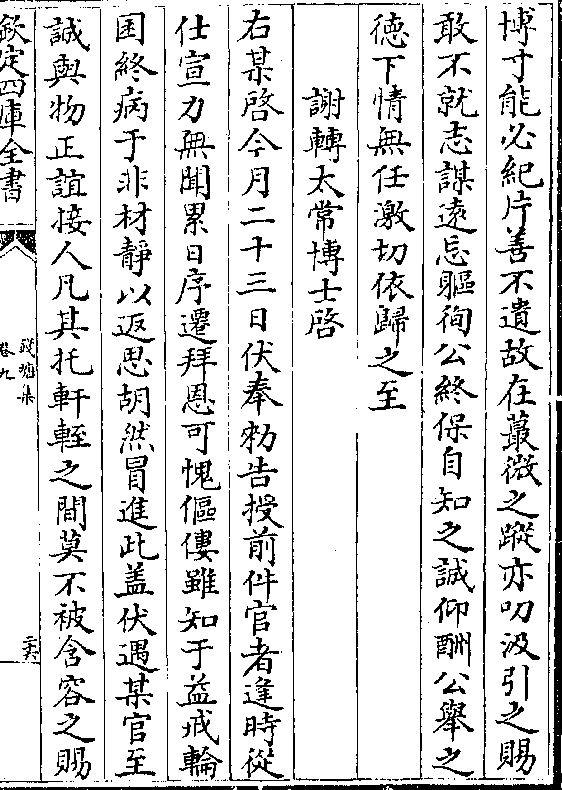 博寸能必紀片善不遺故在蕞微之蹤亦叨汲引之賜
敢不就志謀遠忘軀徇公終保自知之誠仰酬公舉之
徳下情無任激切依歸之至
謝轉太常博士啓
右某啓今月二十三日伏奉勑告授前件官者逢時從
仕宣力無聞累日序遷拜恩可愧傴僂雖知于益戒輪
囷終病于非材靜以返思胡然冒進此盖伏遇某官至
誠與物正誼接人凡其托軒輊之間莫不被含容之賜
欽定四庫全書
卷九